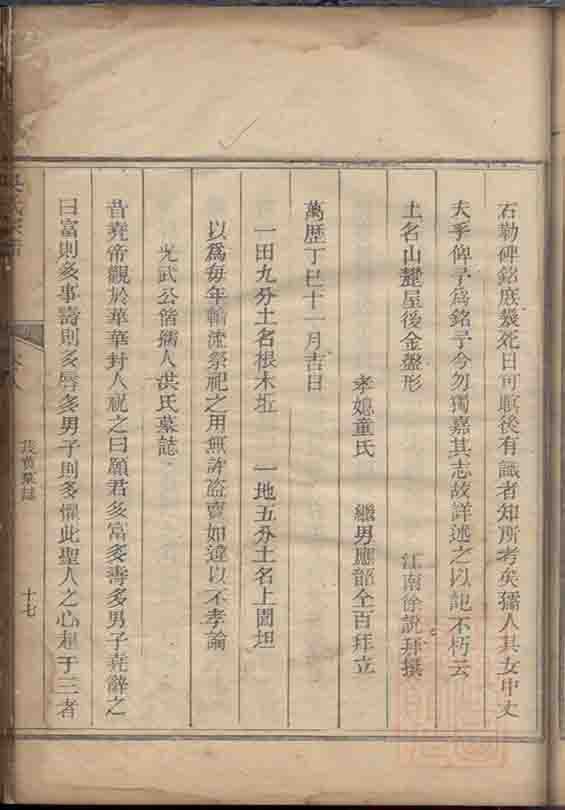 石勒碑銘庶幾死日可瞑後有識者知所考矣孺人其女中丈
夫乎俾予為銘予今勿獨嘉其志故詳述之以記不朽云
土名山蓬屋後金盤形 江南徐說拜撰
孝媳童氏 繼男應韶仝百拜立
萬歷丁巳十一月吉日
一田九分土名根木坵 一地五分土名上園坦
以為每年輪流祭祀之用無許盜賣如違以不孝論
光武公偕孺人洪氏墓誌
昔堯帝觀於華華封人祝之曰願君多富多壽多男子堯辭之
曰富則多事壽則多辱多男子則多懼此聖人之心超于三者
吳氏宗譜
卷八
墓誌
十七